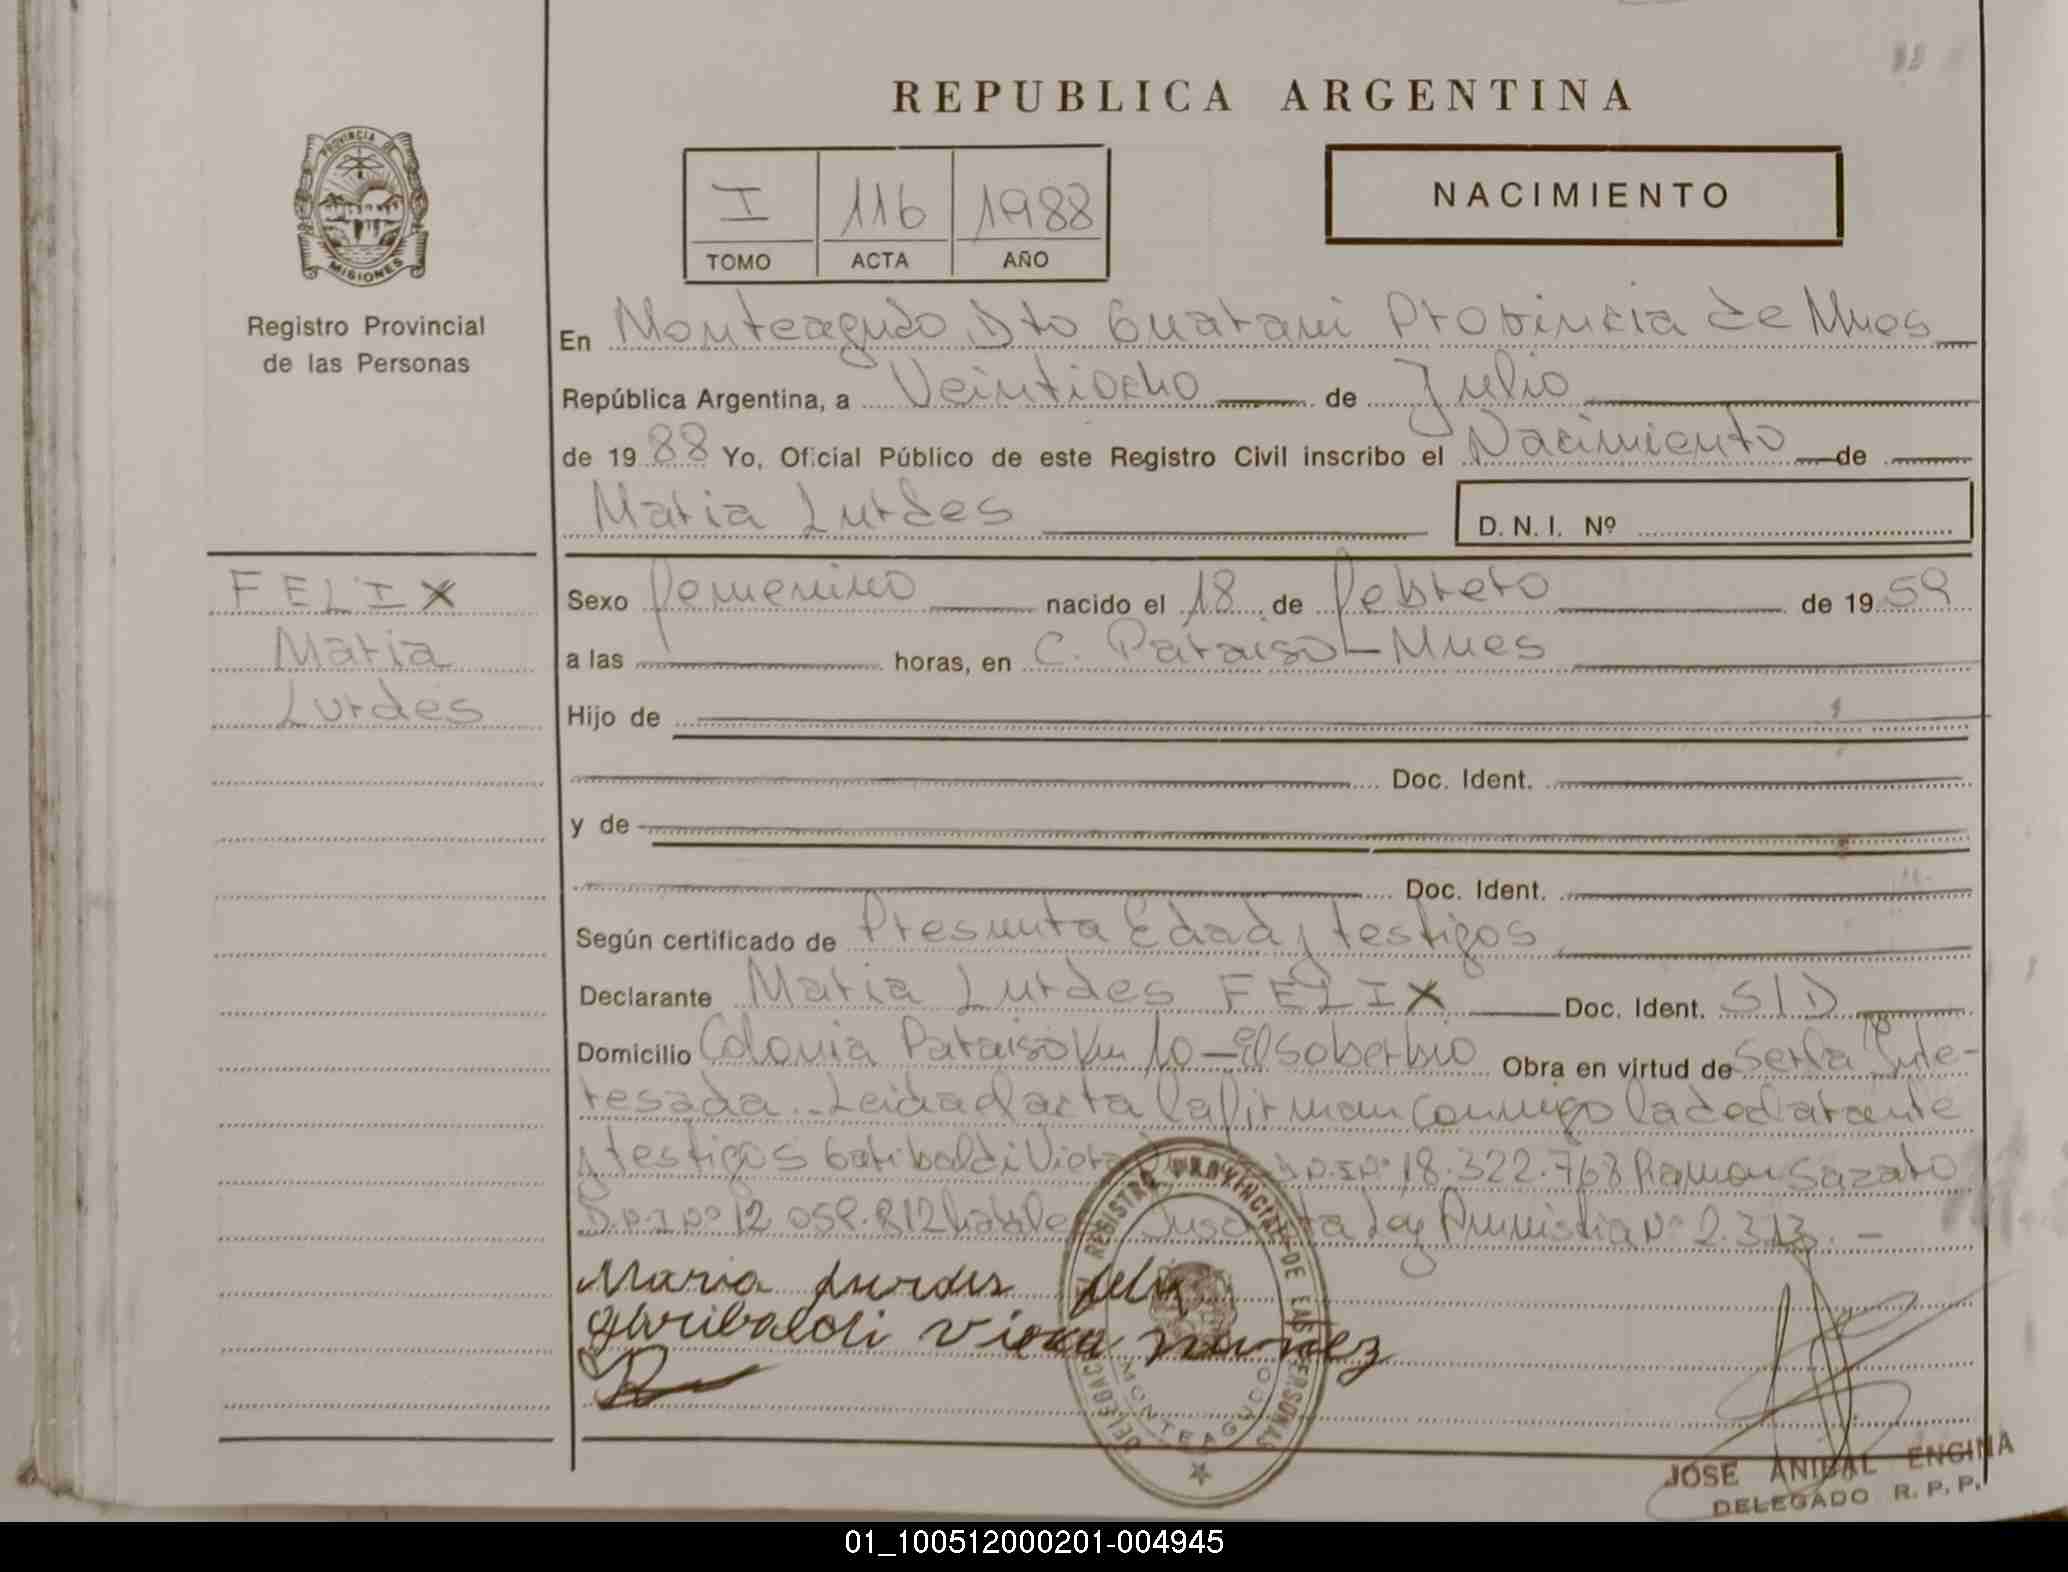 REPUBLICA ARGENTINA
PROVINCIA DE
MISIONES
Registro Provincial
de las Personas
I 116 1988
TOMO ACTA AÑO
NACIMIENTO
En Monteagudo, Dto Guarani Provincia de Mnes
República Argentina, a Veintiocho de Julio
de 1988 Yo, Oficial Público de este Registro Civil inscribo el Nacimiento de
Maria Lurdes
D. N. I. Nº
FELIX
Maria
Lurdes
Sexo femenino nacido el 18 de febrero de 1959
a las horas, en C. Paraiso - Mnes
Hijo de
Doc. Ident.
y de
Doc. Ident.
Según certificado de Presunta Edad y testigos
Declarante Maria Lurdes FELIX Doc. Ident. S/D
Domicilio Colonia Paraiso Km 10 - El Soberbio Obra en virtud de ser la Inte-
resada.. Leida el acta la firman conmigo la declarante
y testigos Garibaldi Viera D.N.I.Nº 18.322.768 Ramon
D.N.I.Nº 12.059.812 Ley Amnistia Nº 2.313. -
Maria Lurdes felix
garibaldi viera nunez
DELEGACION REGISTRO PROVINCIAL DE LAS PERSONAS
MONTEAGUDO
JOSE ANIBAL ENCINA
DELEGADO R. P. P.
01_100512000201-004945